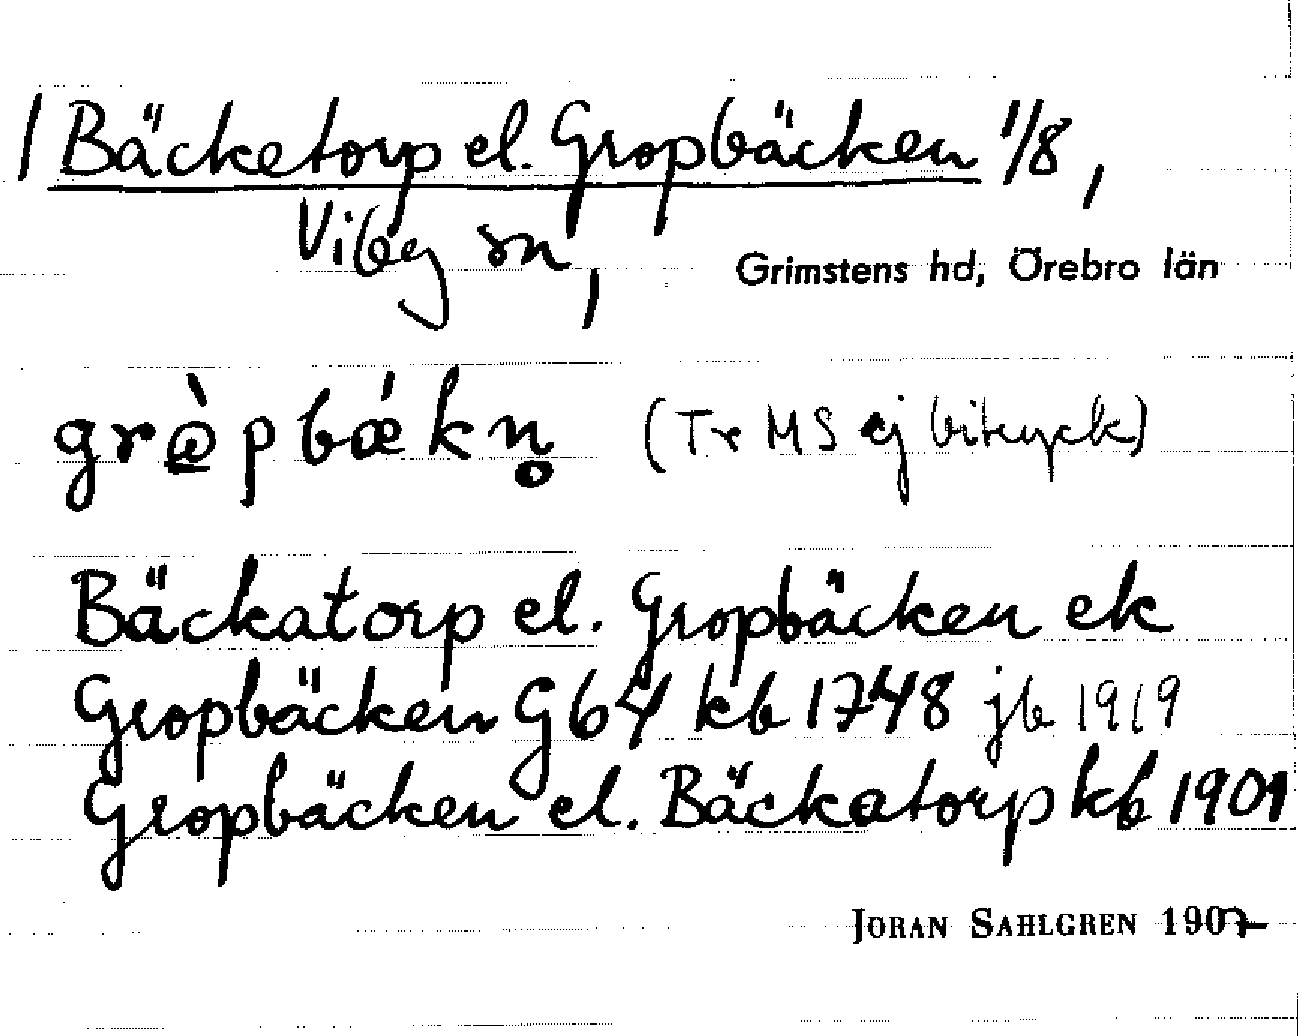 / Bäcketorp el. Gropbäcken 1/8,
Viby sn,
Grimstens hd, Örebro län
gràpbǽkn̥ (Tr MS ej bitryck)
Bäckatorp el. Gropbäcken ek
Gropbäcken G64 kb 1748 jb 1919
Gropbäcken el. Bäckatorp kb 1901
JÖRAN SAHLGREN 1907